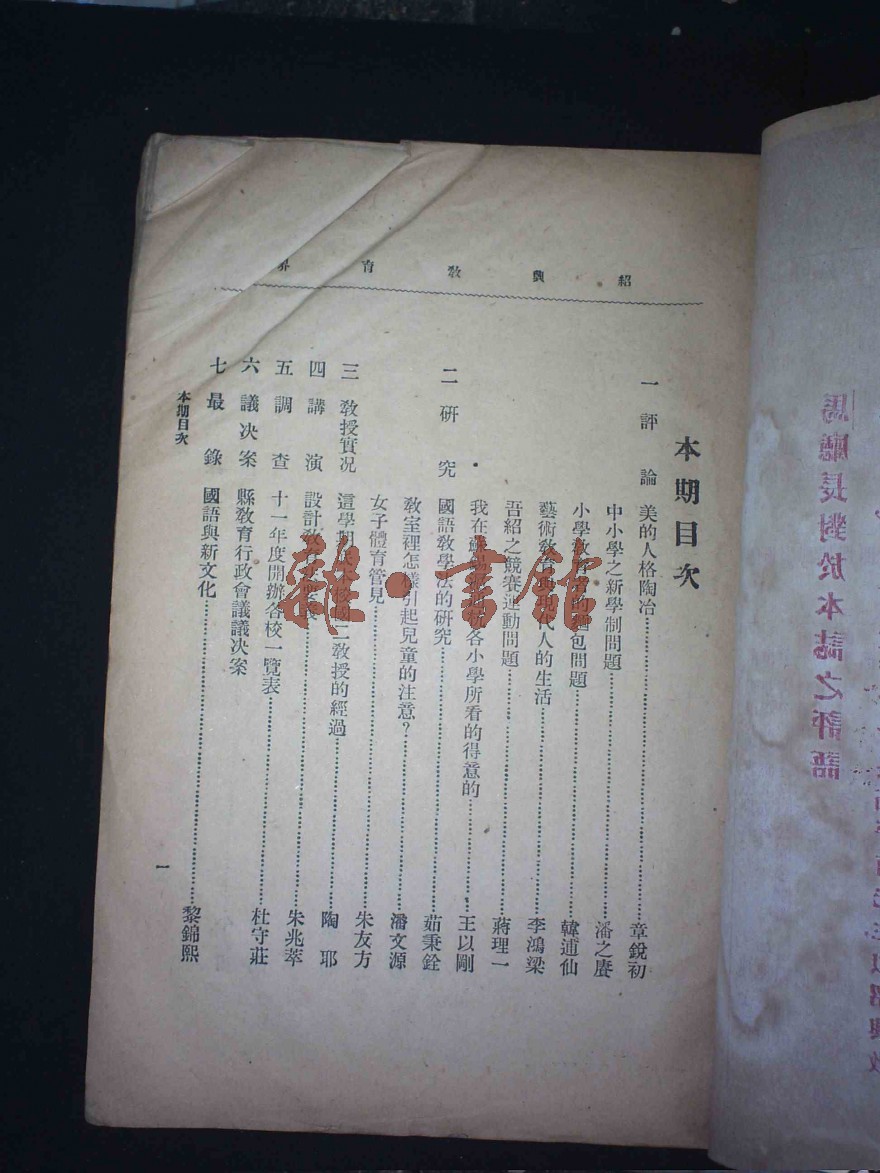 紹興教育界
本期目次
一 評論 美的人格陶冶 章銳初
中小學之新學制問題 潘之賡
小學教育者的麵包問題 韓逋仙
藝術教育與現代人的生活 李鴻梁
吾紹之競賽運動問題 蔣理一
我在蘇錫 各小學所看的得意的 王以剛
二 研究 國語教學法的研究 茹秉銓
教室裡怎樣引起兒童的注意? 潘文源
女子體育管見 朱友方
三 教授實况 這學期 本校國 二教授的經過 陶耶
四 講演 設計教 朱兆萃
五 調查 十一年度開辦各校一覽表 杜守莊
六 議決案 縣教育行政會議議決案
七 最錄 國語與新文化 黎錦熙
本期目次
一
雜·書館
馬廳長對於本誌之評語